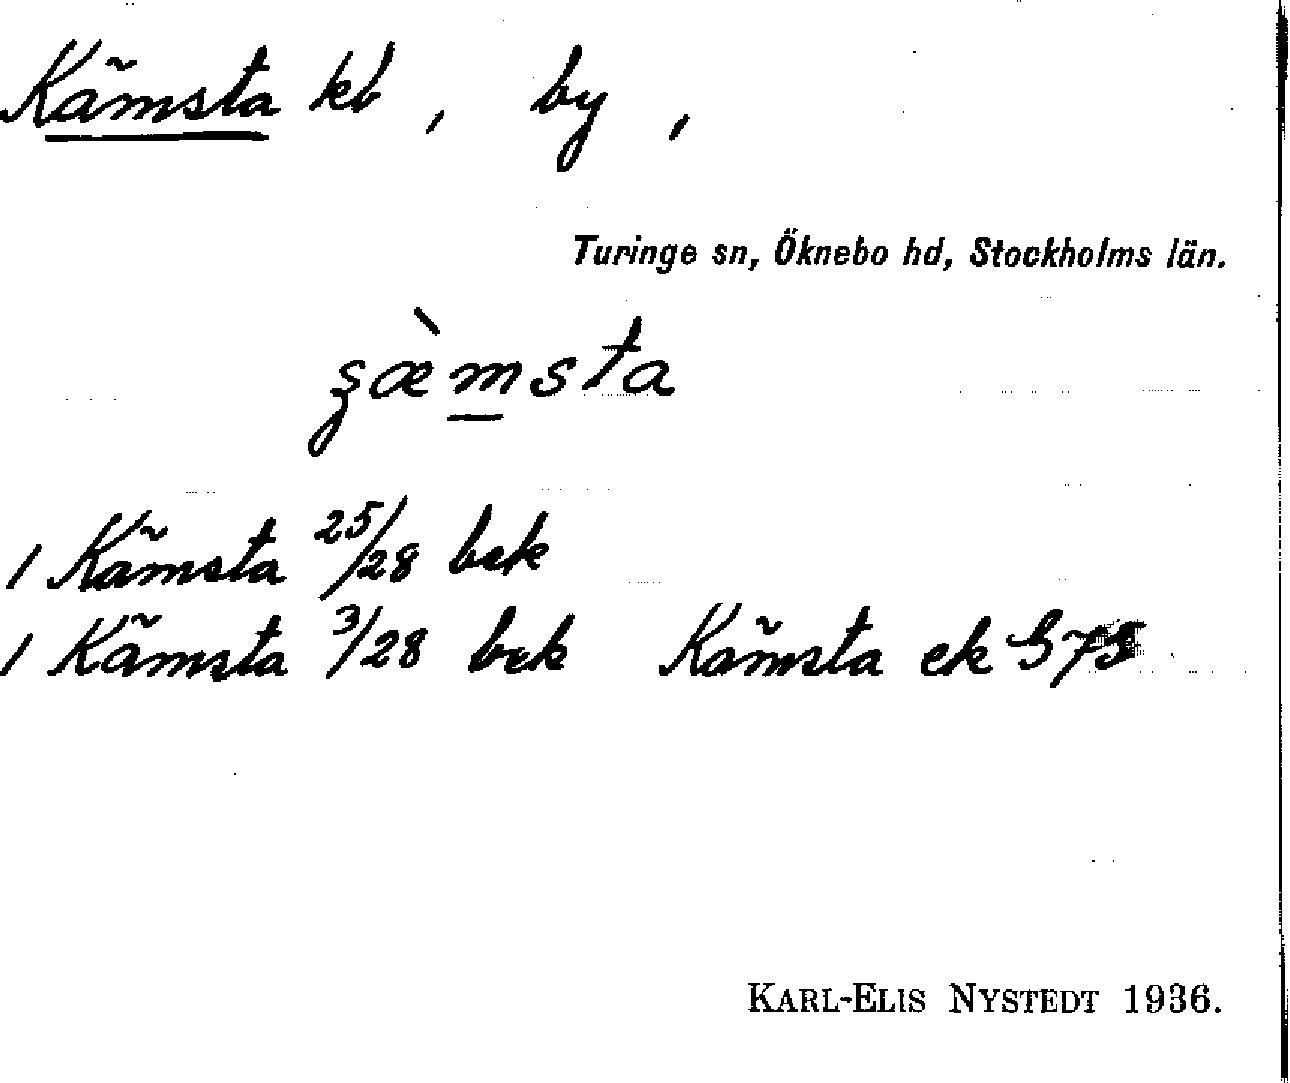 Kämsta kb, by,
Turinge sn, Öknebo hd, Stockholms län.
ʂæ̀msta
1 Kämsta 25/28 bek
1 Kämsta 3/28 bek Kämsta ek
KARL-ELIS NYSTEDT 1936.